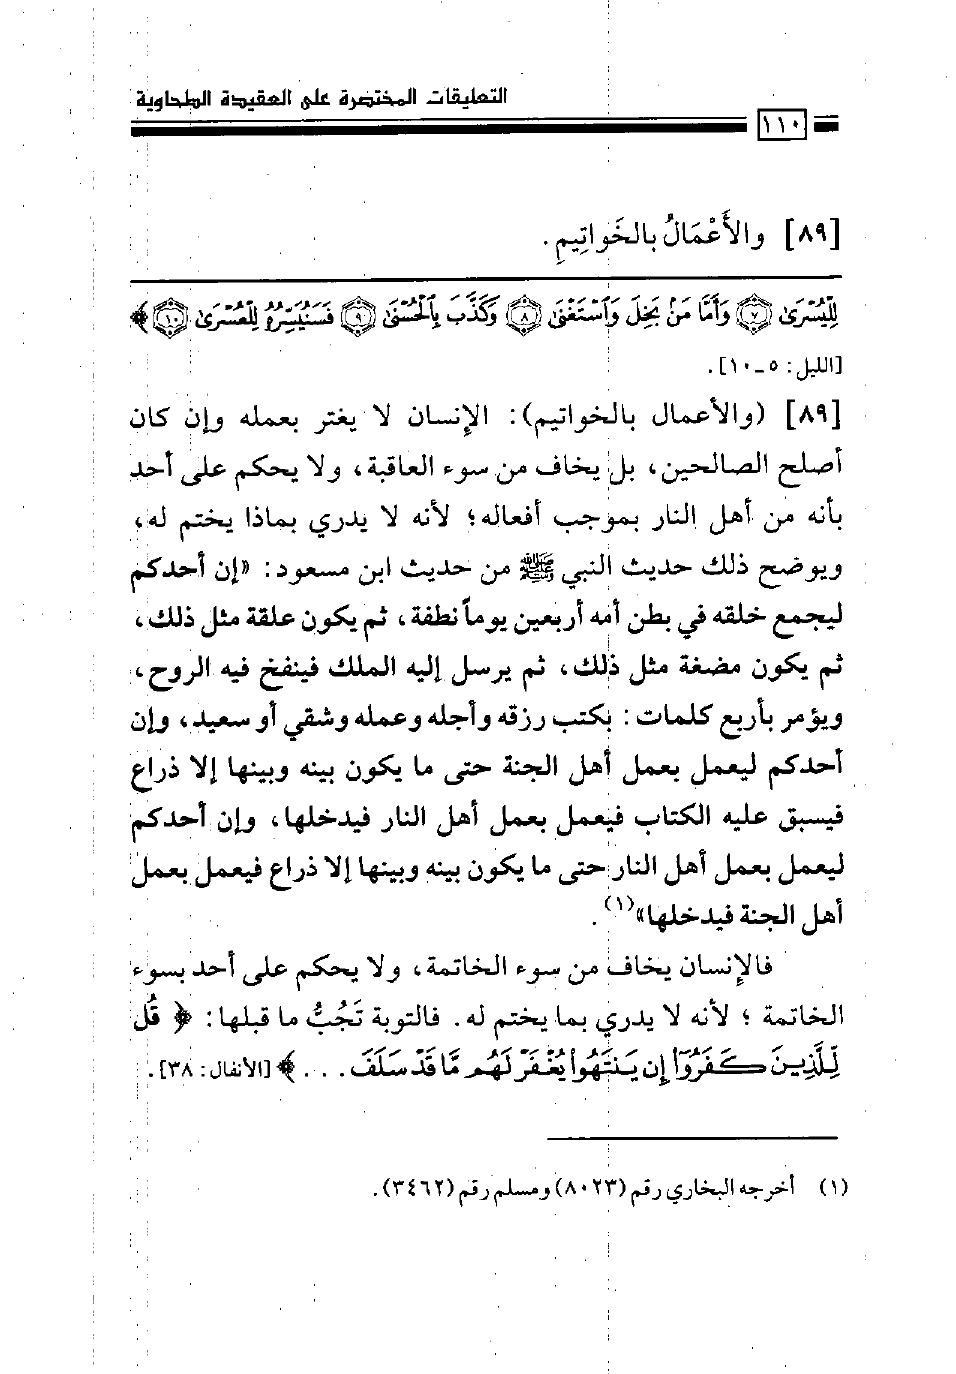 التعليقات المختصرة على العقيدة الطحاوية
١١٠
[٨٩] والأَعْمَالُ بالخَواتِيمِ .
لِلْيُسْرَىٰ ﴿٧﴾ وَأَمَّا مَنۢ بَخِلَ وَٱسْتَغْنَىٰ ﴿٨﴾ وَكَذَّبَ بِٱلْحُسْنَىٰ ﴿٩﴾ فَسَنُيَسِّرُهُۥ لِلْعُسْرَىٰ ﴿١٠﴾ ﴾
[الليل: ٥ ـ ١٠] .
[٨٩] (والأعمال بالخواتيم): الإنسان لا يغتر بعمله وإن كان
أصلح الصالحين، بل يخاف من سوء العاقبة، ولا يحكم على أحد
بأنه من أهل النار بموجب أفعاله؛ لأنه لا يدري بماذا يختم له،
ويوضح ذلك حديث النبي ﷺ من حديث ابن مسعود: «إن أحدكم
ليجمع خلقه في بطن أمه أربعين يوماً نطفة، ثم يكون علقة مثل ذلك،
ثم يكون مضغة مثل ذلك، ثم يرسل إليه الملك فينفخ فيه الروح،
ويؤمر بأربع كلمات: بكتب رزقه وأجله وعمله وشقي أو سعيد، وإن
أحدكم ليعمل بعمل أهل الجنة حتى ما يكون بينه وبينها إلا ذراع
فيسبق عليه الكتاب فيعمل بعمل أهل النار فيدخلها، وإن أحدكم
ليعمل بعمل أهل النار حتى ما يكون بينه وبينها إلا ذراع فيعمل بعمل
أهل الجنة فيدخلها»(١) .
فالإنسان يخاف من سوء الخاتمة، ولا يحكم على أحد بسوء
الخاتمة ؛ لأنه لا يدري بما يختم له. فالتوبة تَجُبُّ ما قبلها: ﴿ قُل
لِّلَّذِينَ كَفَرُوٓا۟ إِن يَنتَهُوا۟ يُغْفَرْ لَهُم مَّا قَدْ سَلَفَ. . . ﴾ [الأنفال: ٣٨] .
(١) أخرجه البخاري رقم (٨٠٢٣) ومسلم رقم (٣٤٦٢).